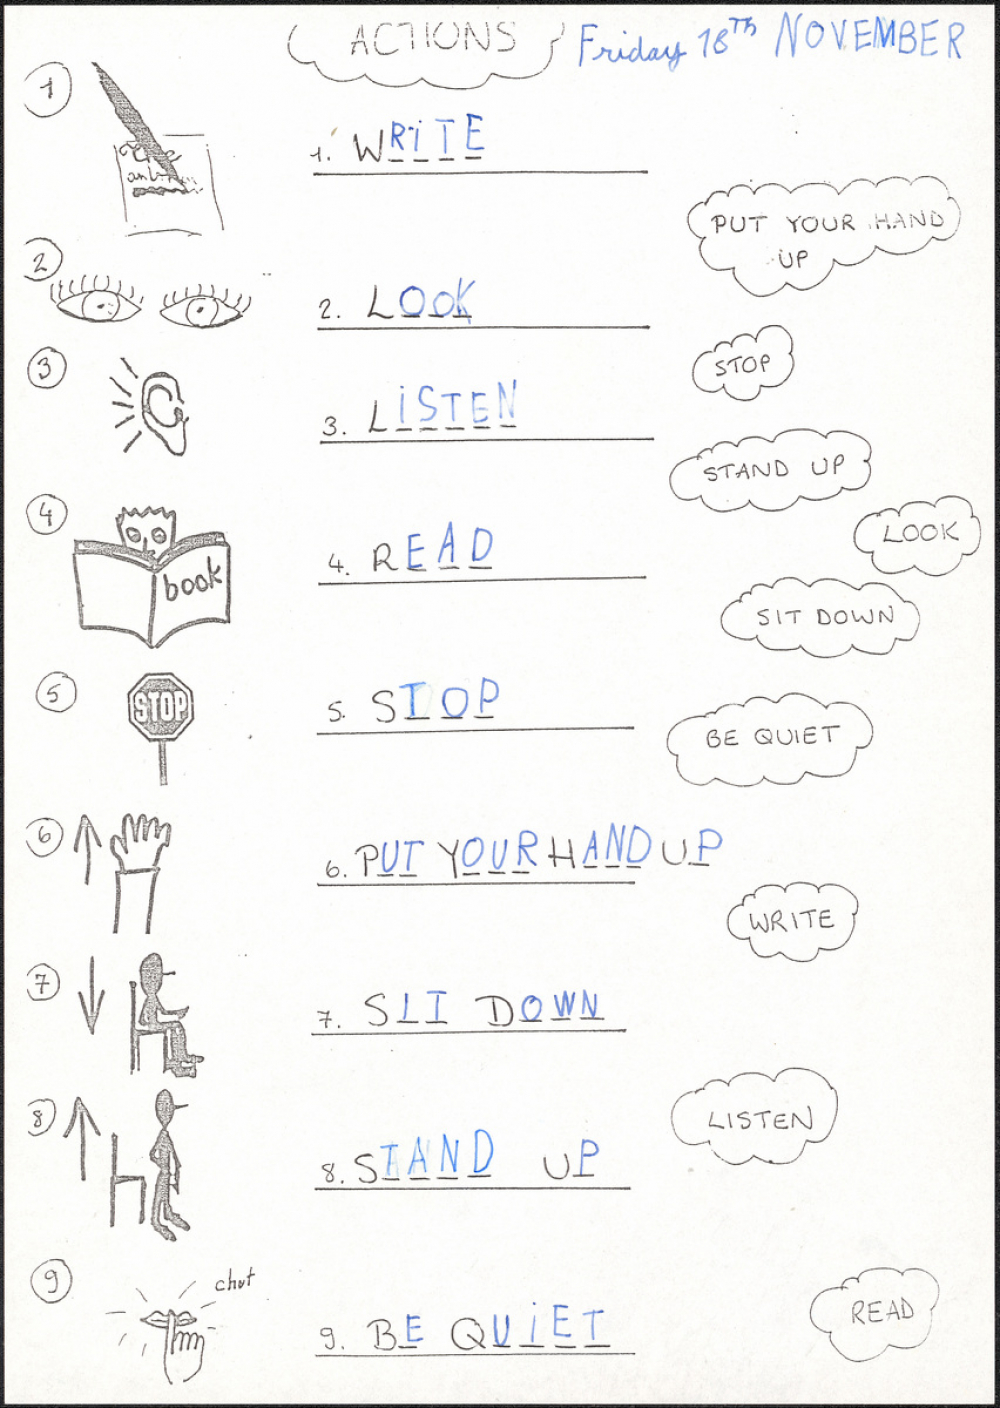 ACTIONS Friday 18Th NOVEMBER
1
1. WRiTE
PUT YOUR HAND
UP
2
2. LOOK
STOP
3
3. LiSTEN
STAND UP
4
LOOK
book
4. READ
SIT DOWN
5
STOP
5. STOP
BE QUIET
6
6. PUT YOUR HAND UP
WRITE
7
7. SIT DOWN
8
LISTEN
8. STAND UP
9
chut
READ
9. BE QUiET